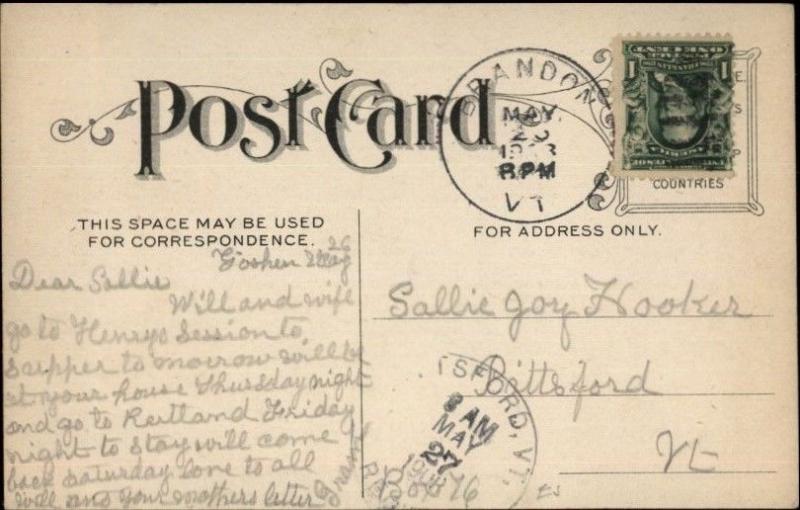 Post Card
BRANDON
MAY
26
1908
PM
VT
COUNTRIES
THIS SPACE MAY BE USED
FOR CORRESPONDENCE.
FOR ADDRESS ONLY.
Goshen May 26
Dear Sallie
Will and wife
go to Henrys Session to
supper to morrow will be
at your house Thursday night
and go to Rutland Friday
night to stay will come
back saturday love to all
Will and your mothers letter
Sallie Joy Hooker
Pittsford
Vt
TSFORD, VT.
8 AM
MAY
27
1908